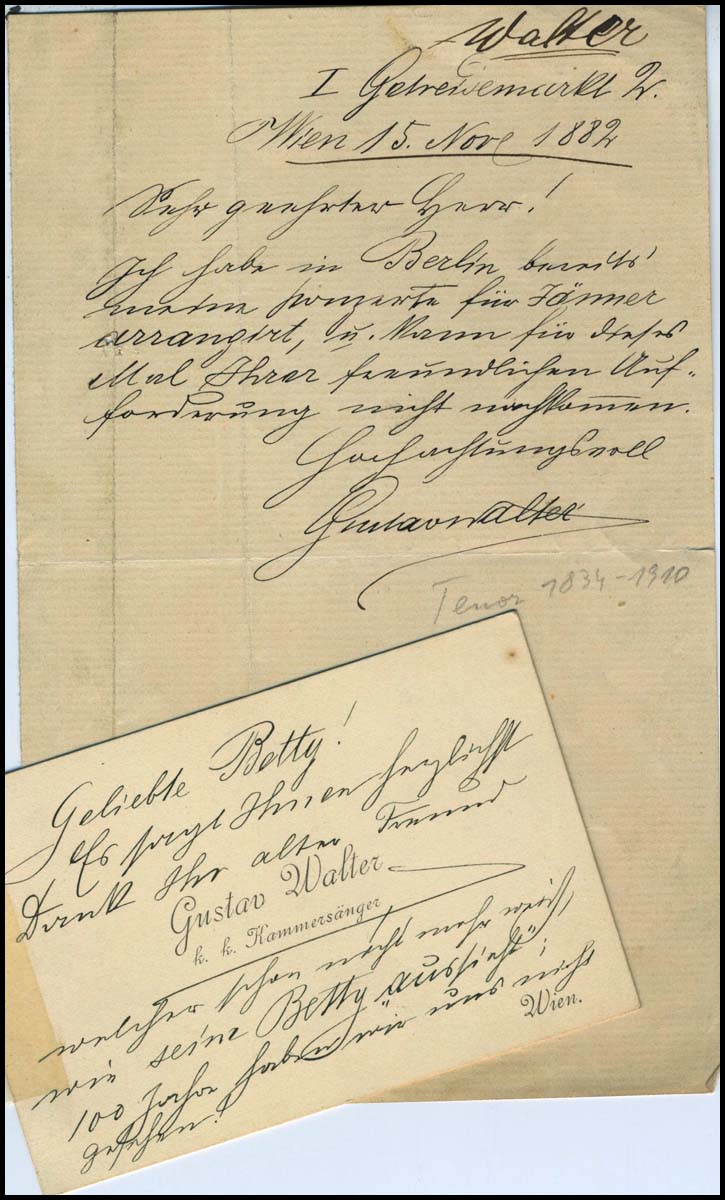 Walter
I Getreidemarkt 2.
Wien 15. Nov 1882
Sehr geehrter Herr!
Ich habe in Berlin bereits
meine Konzerte für Jänner
arrangirt, u. kann für dieses
Mal Ihrer freundlichen Auf-
forderung nicht nachkommen.
Hochachtungsvoll
Gustav Walter
Tenor 1834-1910
Geliebte Betty!
Es sagt Ihnen herzlichst
Dank Ihr alter Freund
Gustav Walter
k. k. Kammersänger
welcher schon nicht mehr weiß,
wie seine Betty „aussieht";
100 Jahre haben wir uns nicht
Wien.
gesehen!